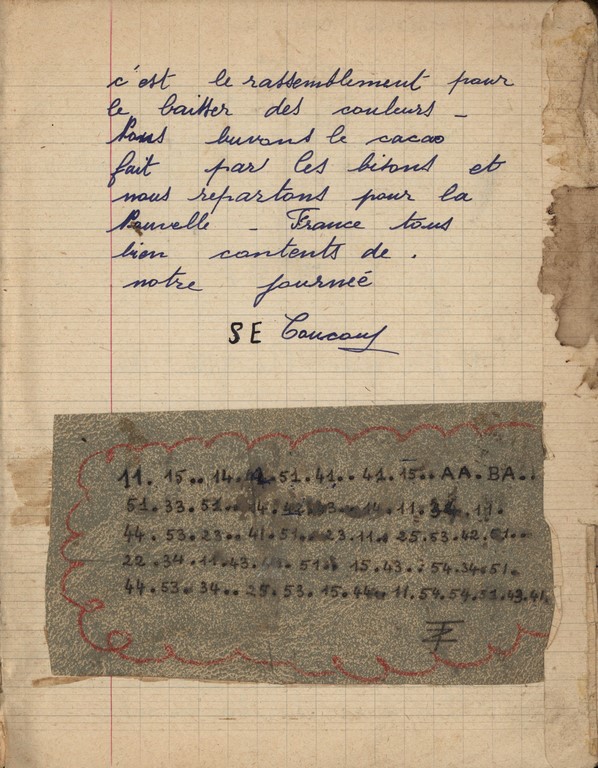 c'est le rassemblement pour
le baisser des couleurs _
Nous buvons le cacao
fait par les bisons et
nous repartons pour la
Nouvelle - France tous
bien contents de .
notre journeé
SE
11. 15.. 14. 51. 41.. 41. 15.. AA. BA..
51. 33. 51.. 14. 14. 11. 34.
44. 53. 23.. 41. 51.. 23. 11.. 25. 53. 42.
22. 34. 11. 43. 51.. 15. 43.. 54. 34. 51.
44. 53. 34.. 25. 53. 15. 44.. 11. 54. 54. 51. 43. 41.